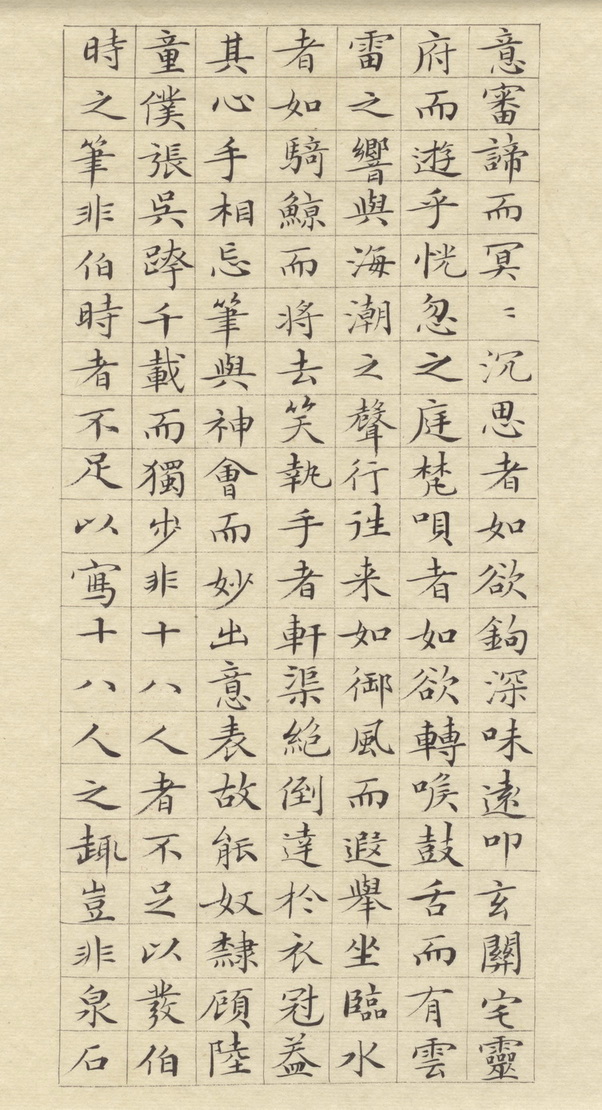 意審諦而冥〻沉思者如欲鉤深味遠叩玄關宅靈
府而遊乎恍忽之庭梵唄者如欲轉喉鼓舌而有雲
雷之響與海潮之聲行往来如御風而遐舉坐臨水
者如騎鯨而將去笑執手者軒渠絶倒達於衣冠葢
其心手相忘筆與神會而妙出意表故能奴隸顧陸
童僕張吳跨千載而獨步非十八人者不足以發伯
時之筆非伯時者不足以寫十八人之趣豈非泉石